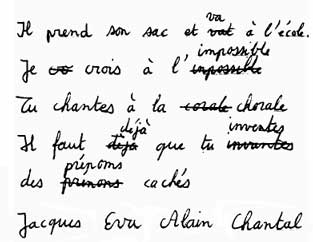 Il prend son sac et vat va à l'école.
Je co crois à l'inpossible impossible
Tu chantes à la corale chorale
Il faut dèja déjà que tu invantes inventes
des prénoms cachés
Jacques Eva Alain Chantal